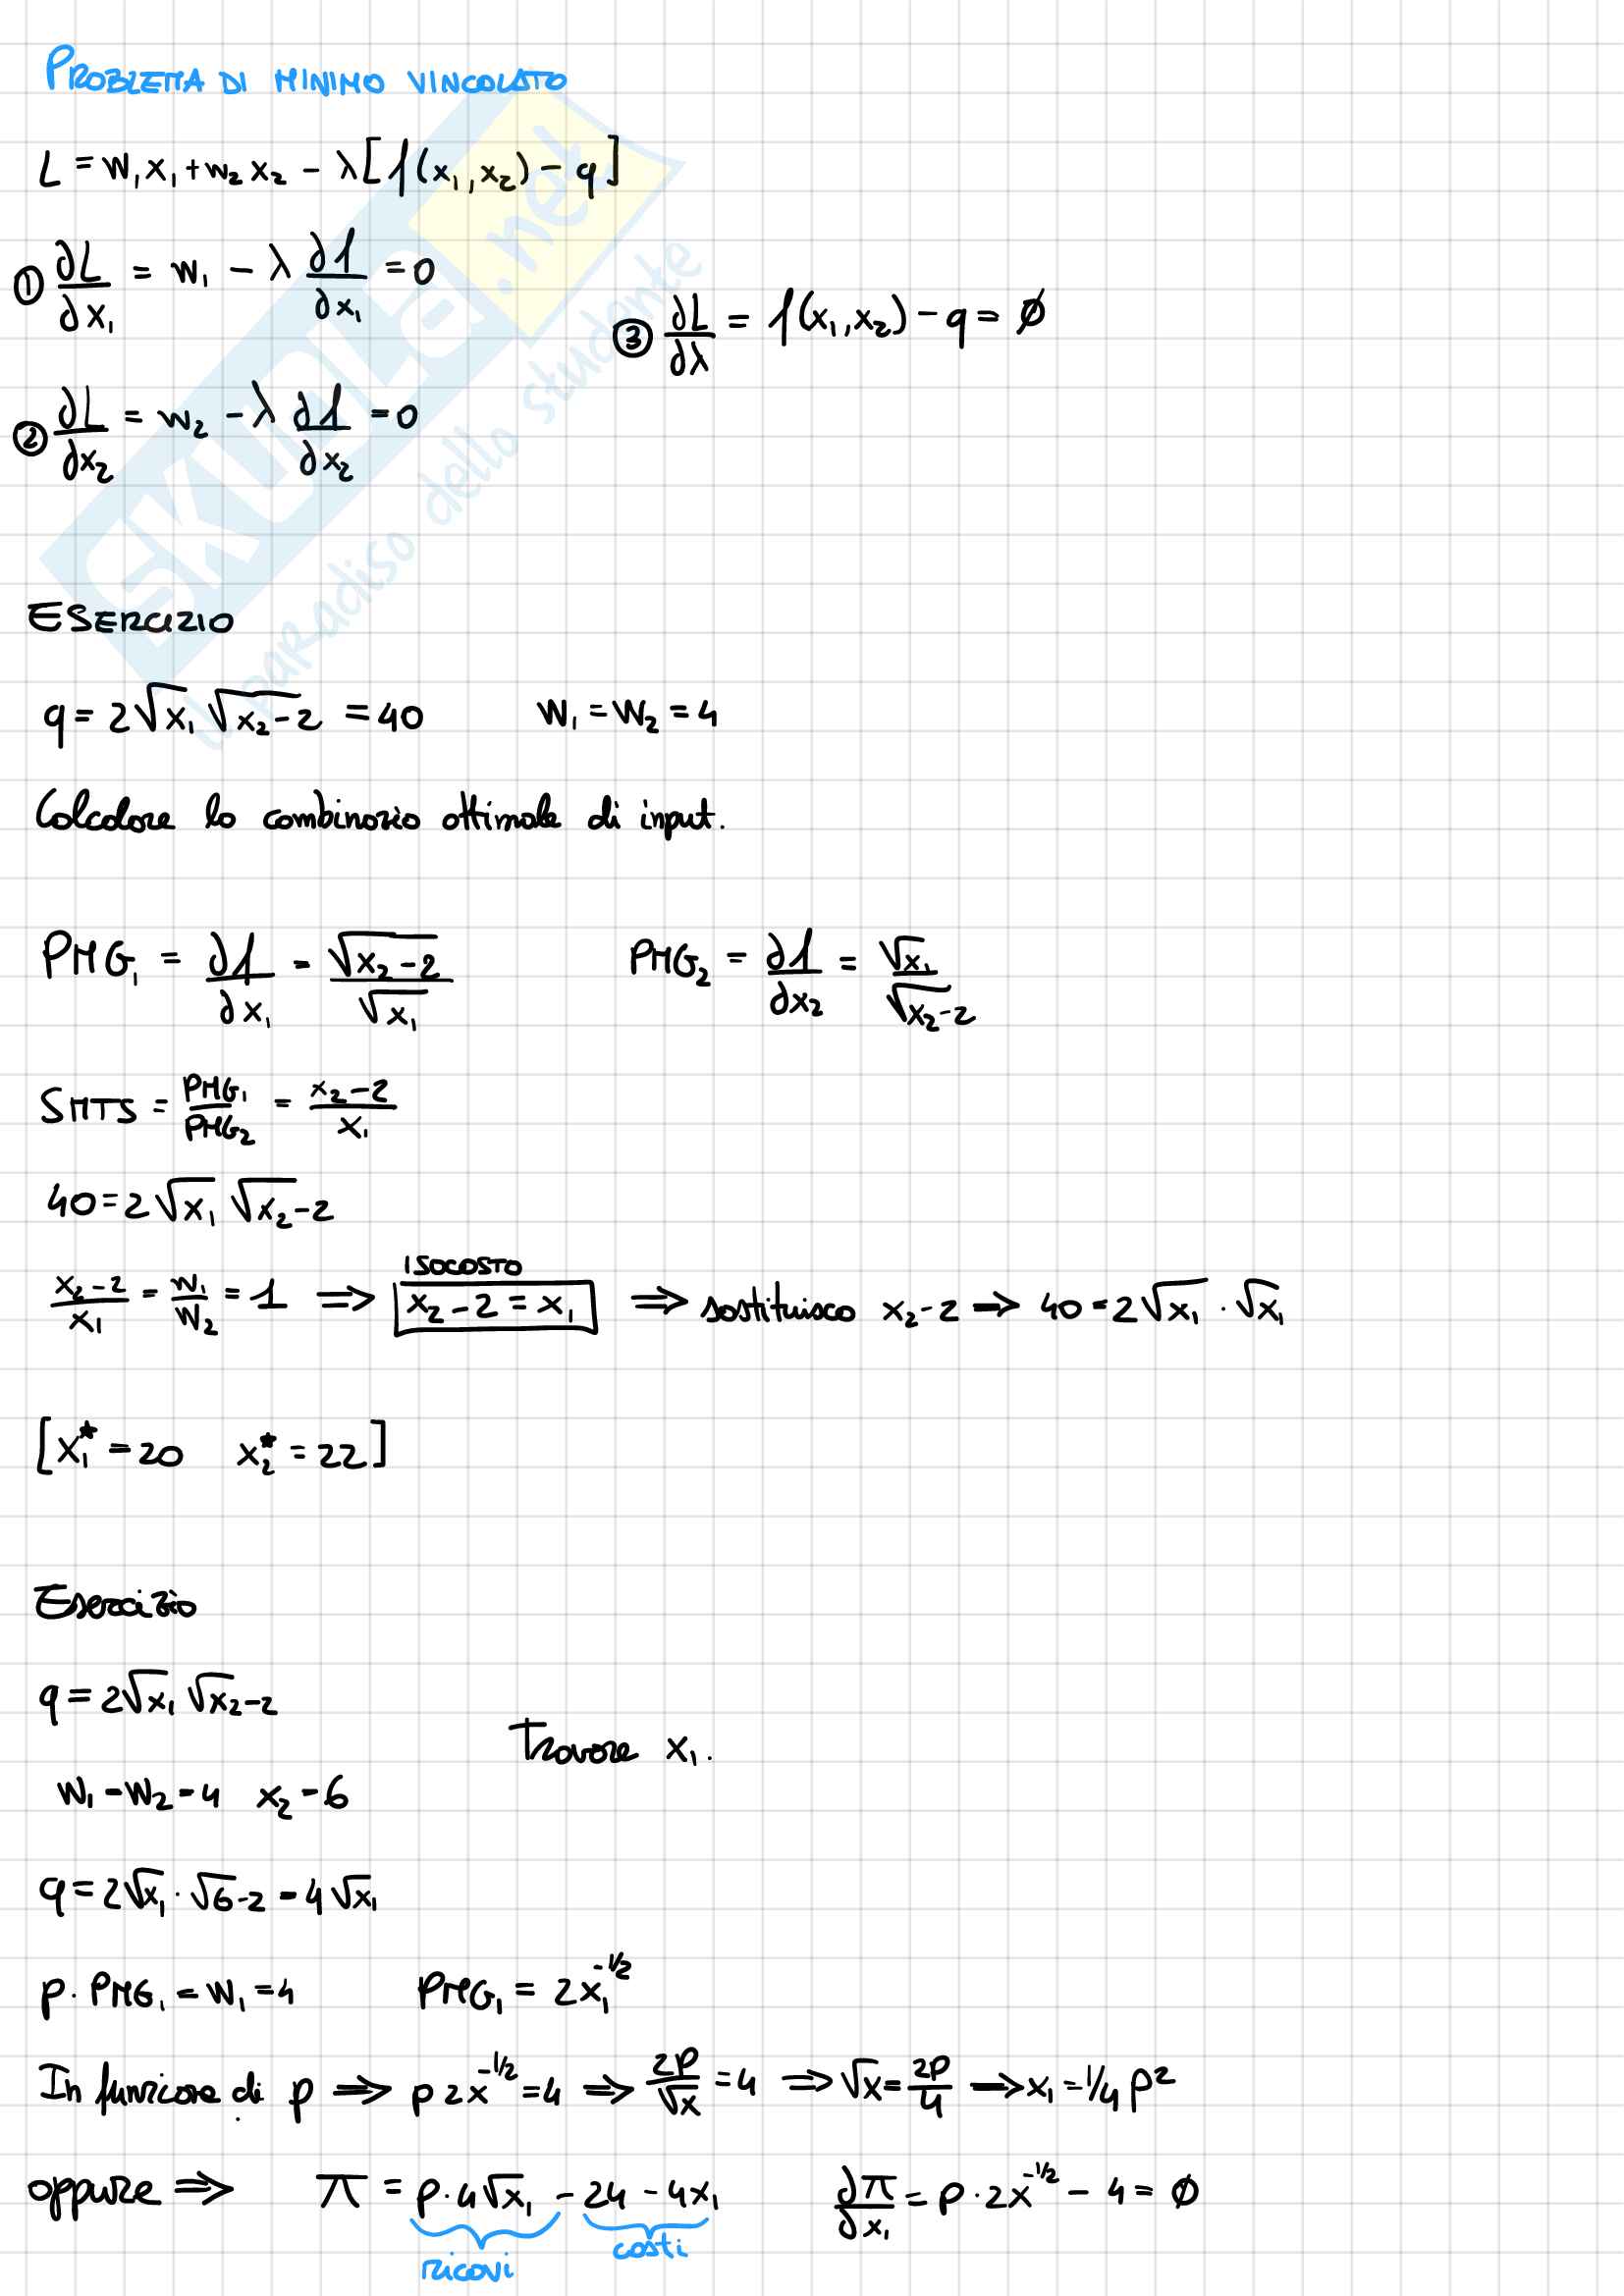 PROBLEMA DI MINIMO VINCOLATO
L = w₁x₁ + w₂x₂ − λ[f(x₁,x₂) − q]
① ∂L/∂x₁ = w₁ − λ ∂f/∂x₁ = 0
③ ∂L/∂λ = f(x₁,x₂) − q = ∅
② ∂L/∂x₂ = w₂ − λ ∂f/∂x₂ = 0
SKUOLA.net
il paradiso dello studente
ESERCIZIO
q = 2√x₁ √(x₂−2) = 40 w₁ = w₂ = 4
Calcolare la combinazio ottimale di input.
PMG₁ = ∂f/∂x₁ = √(x₂−2)/√x₁ PMG₂ = ∂f/∂x₂ = √x₁/√(x₂−2)
SMTS = PMG₁/PMG₂ = (x₂−2)/x₁
40 = 2√x₁ √x₂−2
ISOCOSTO
(x₂−2)/x₁ = w₁/w₂ = 1 ⇒ x₂−2 = x₁ ⇒ sostituisco x₂−2 → 40 = 2√x₁ · √x₁
[x₁* = 20 x₂* = 22]
Esercizio
q = 2√x₁ √x₂−2
Trovare x₁.
w₁ = w₂ = 4 x₂ = 6
q = 2√x₁ · √6−2 = 4√x₁
p · PMG₁ = w₁ = 4 PMG₁ = 2x₁^(−1/2)
In funzione di p ⇒ p 2x^(−1/2) = 4 ⇒ 2p/√x = 4 ⇒ √x = 2p/4 → x₁ = 1/4 p²
oppure ⇒ π = p·4√x₁ − 24 − 4x₁ ∂π/∂x₁ = p·2x^(−1/2) − 4 = ∅
ricavi costi